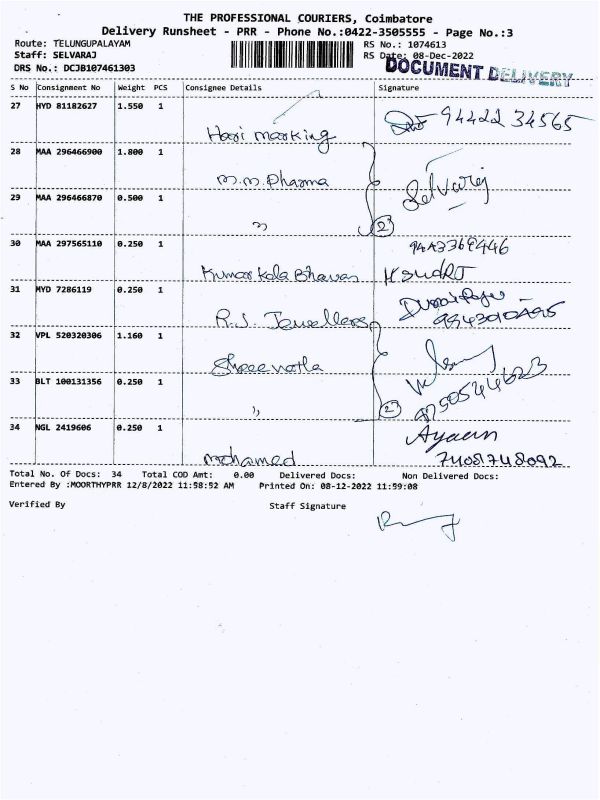 THE PROFESSIONAL COURIERS, Coimbatore
Delivery Runsheet - PRR - Phone No.:0422-3505555 - Page No.:3
Route: TELUNGUPALAYAM RS No.: 1074613
Staff: SELVARAJ RS Date: 08-Dec-2022
DRS No.: DCJB107461303 DOCUMENT DELIVERY
S No Consignment No Weight PCS Consignee Details Signature
27 HYD 81182627 1.550 1
Hari marking 94422 34565
28 MAA 296466900 1.800 1
M.M. Pharma Selvaraj
29 MAA 296466870 0.500 1
" 2
30 MAA 297565110 0.250 1
Kumar Kala Bhavan
31 MYD 7286119 0.250 1
R.S. Jewellers
32 VPL 520320306 1.160 1
Shree
33 BLT 100131356 0.250 1
" 2
34 NGL 2419606 0.250 1
mohamed
Total No. Of Docs: 34 Total COD Amt: 0.00 Delivered Docs: Non Delivered Docs:
Entered By :MOORTHYPRR 12/8/2022 11:58:52 AM Printed On: 08-12-2022 11:59:08
Verified By Staff Signature